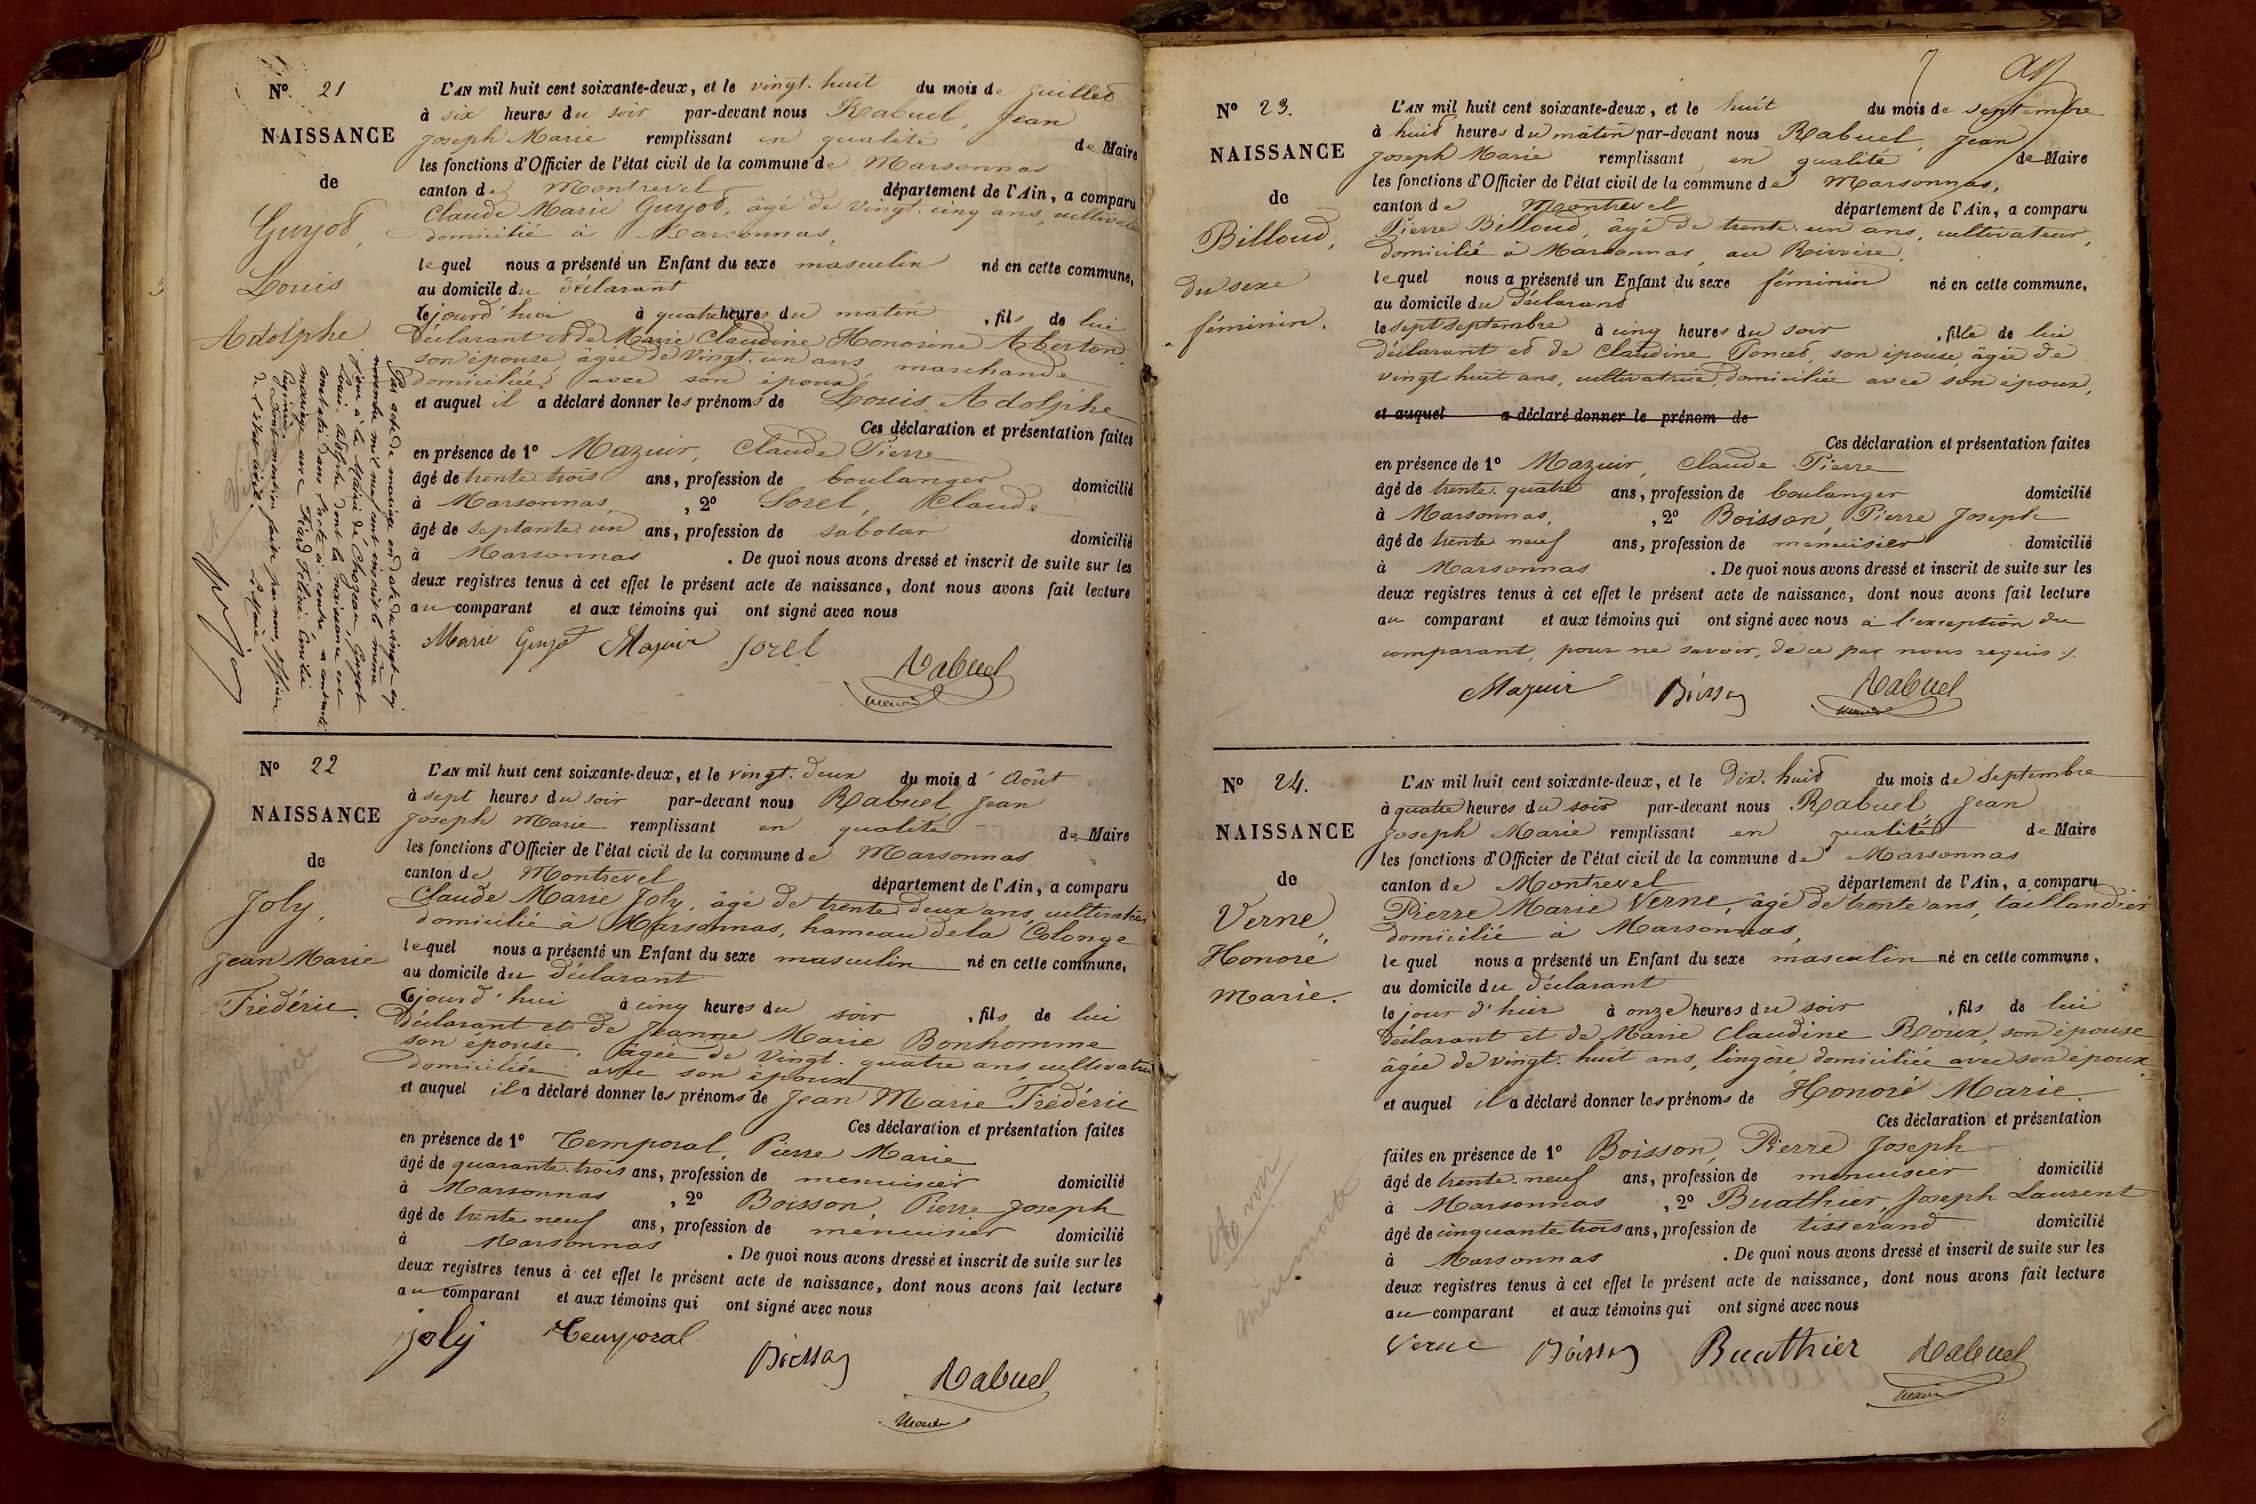 Nº 21
NAISSANCE
de
Guyot,
Louis
Adolphe
L'AN mil huit cent soixante-deux, et le vingt-huit du mois de Juillet
à six heures du soir par-devant nous Rabuel, Jean
Joseph Marie remplissant en qualité de Maire
les fonctions d'Officier de l'état civil de la commune de Marsonnas
canton de Montrevel département de l'Ain, a comparu
Claude Marie Guyot, âgé de vingt-cinq ans, cultivateur
domicilié à Marsonnas,
lequel nous a présenté un Enfant du sexe masculin né en cette commune,
au domicile du déclarant
cejourd'hui à quatre heures du matin, fils de lui
déclarant et de Marie Claudine Honorine Alerton
son épouse âgée de vingt-un ans, marchande
domiciliée avec son époux,
et auquel il a déclaré donner les prénoms de Louis Adolphe
Ces déclaration et présentation faites
en présence de 1º Mazuir, Claude Pierre
âgé de trente trois ans, profession de boulanger domicilié
à Marsonnas, 2º Sorel, Claude
âgé de septante un ans, profession de sabotier domicilié
à Marsonnas. De quoi nous avons dressé et inscrit de suite sur les
deux registres tenus à cet effet le présent acte de naissance, dont nous avons fait lecture
au comparant et aux témoins qui ont signé avec nous
Marie Guyot Mazuir Sorel
Rabuel
maire
Par acte de mariage en date du vingt
novembre mil neuf cent inscrit le même
jour à la Mairie de Guyot
Louis-Adolphe dont la naissance est
constatée dans l'acte ci-contre, a contracté
mariage avec
mention faite par nous, officier
de l'état civil.
Nº 22
NAISSANCE
de
Joly,
Jean Marie
Frédéric.
L'AN mil huit cent soixante-deux, et le vingt-deux du mois d'Août
à sept heures du soir par-devant nous Rabuel, Jean
Joseph Marie remplissant en qualité de Maire
les fonctions d'Officier de l'état civil de la commune de Marsonnas
canton de Montrevel département de l'Ain, a comparu
Claude Marie Joly, âgé de trente deux ans, cultivateur
domicilié à Marsonnas, hameau de la Colonge
lequel nous a présenté un Enfant du sexe masculin né en cette commune,
au domicile du déclarant
cejourd'hui à cinq heures du soir, fils de lui
déclarant et de Jeanne Marie Bonhomme
son épouse, âgée de vingt-quatre ans, cultivatrice
domiciliée avec son époux
et auquel il a déclaré donner les prénoms de Jean Marie Frédéric
Ces déclaration et présentation faites
en présence de 1º Temporal, Pierre Marie
âgé de quarante-trois ans, profession de menuisier domicilié
à Marsonnas, 2º Boisson, Pierre Joseph
âgé de trente neuf ans, profession de menuisier domicilié
à Marsonnas. De quoi nous avons dressé et inscrit de suite sur les
deux registres tenus à cet effet le présent acte de naissance, dont nous avons fait lecture
au comparant et aux témoins qui ont signé avec nous
joly Temporal
Boisson
Rabuel
Maire
7
Nº 23.
NAISSANCE
de
Billoud,
du sexe
féminin.
L'AN mil huit cent soixante-deux, et le huit du mois de septembre
à huit heures du matin par-devant nous Rabuel, Jean
Joseph Marie remplissant en qualité de Maire
les fonctions d'Officier de l'état civil de la commune de Marsonnas,
canton de Montrevel département de l'Ain, a comparu
Pierre Billoud, âgé de trente-un ans, cultivateur,
domicilié à Marsonnas, au Rivoire,
lequel nous a présenté un Enfant du sexe féminin né en cette commune,
au domicile du déclarant
le sept septembre à cinq heures du soir, fille de lui
déclarant et de Claudine Poncet, son épouse, âgée de
vingt-huit ans, cultivatrice, domiciliée avec son époux,
et auquel a déclaré donner le prénom de
Ces déclaration et présentation faites
en présence de 1º Mazuir, Claude Pierre
âgé de trente-quatre ans, profession de boulanger domicilié
à Marsonnas, 2º Boisson, Pierre Joseph
âgé de trente neuf ans, profession de menuisier domicilié
à Marsonnas. De quoi nous avons dressé et inscrit de suite sur les
deux registres tenus à cet effet le présent acte de naissance, dont nous avons fait lecture
au comparant et aux témoins qui ont signé avec nous à l'exception du
comparant, pour ne savoir, de ce par nous requis ./.
Mazuir Boisson Rabuel
maire
Nº 24.
NAISSANCE
de
Verne,
Honoré
Marie.
L'AN mil huit cent soixante-deux, et le dix-huit du mois de septembre
à quatre heures du soir par-devant nous Rabuel, Jean
Joseph Marie remplissant en qualité de Maire
les fonctions d'Officier de l'état civil de la commune de Marsonnas
canton de Montrevel département de l'Ain, a comparu
Pierre Marie Verne, âgé de trente ans, taillandier
domicilié à Marsonnas,
lequel nous a présenté un Enfant du sexe masculin né en cette commune,
au domicile du déclarant
le jour d'hier à onze heures du soir, fils de lui
déclarant et de Marie Claudine Roux, son épouse
âgée de vingt-huit ans, lingère domiciliée avec son époux
et auquel il a déclaré donner les prénoms de Honoré Marie.
Ces déclaration et présentation
faites en présence de 1º Boisson, Pierre Joseph
âgé de trente-neuf ans, profession de menuisier domicilié
à Marsonnas, 2º Buathier, Joseph Laurent
âgé de cinquante trois ans, profession de tisserand domicilié
à Marsonnas. De quoi nous avons dressé et inscrit de suite sur les
deux registres tenus à cet effet le présent acte de naissance, dont nous avons fait lecture
au comparant et aux témoins qui ont signé avec nous
Verne Boisson Buathier Rabuel
maire